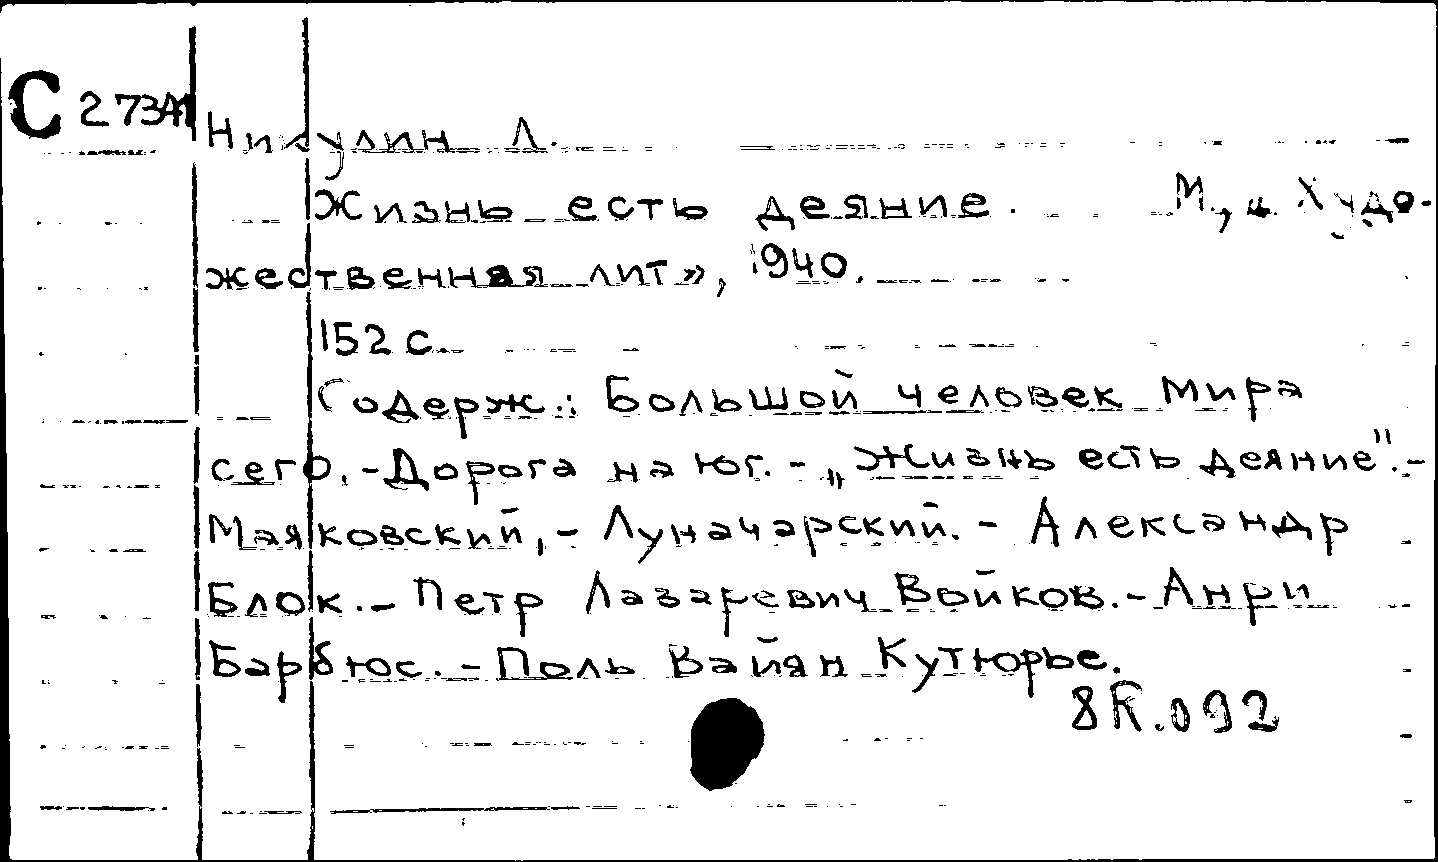 С 27341
Никулин Л.
Жизнь есть деяние. М., „Худо-
жественная лит», 1940.
152 с.
Содерж.: Большой человек мира
сего. - Дорога на юг. - „Жизнь есть деяние". -
Маяковский, - Луначарский. - Александр
Блок. - Петр Лазаревич Войков. - Анри
Барбюс. - Поль Вайян Кутюрье.
8R.092